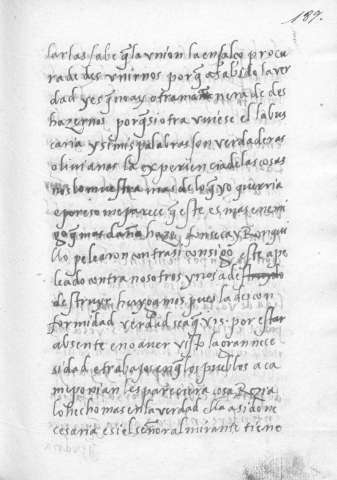 187.
lar las sabe q̃ la vnion la ensalço procu
ra de des vnirnos porq̃ a sabido la ver
dad y es q̃ no ay otra manera de des
hazernos porq̃ si otra vuiese el la bus
caria y si mis palabras son verdaderas
o liuianas la experiencia de las cosas
nos lo muestra mas de lo q̃ yo querria
e por eso me pareçe q̃ este es mas enemi
go q̃ mas daño haze fonseca y Ronqui
llo pelearon contra si consigo este a pe
leado contra nosotros y nos a de
destruyr hayogamos pues la descon
formidad verdad es q̃ vis. por estar
absente e no aver visto la gran nece
sidad e trabajo en q̃ los pueblos aca
me ponian les pareciera cosa Rezia
lo hecho mas en la verdad ella a sido ne
cesaria e si el señor almirante tiene